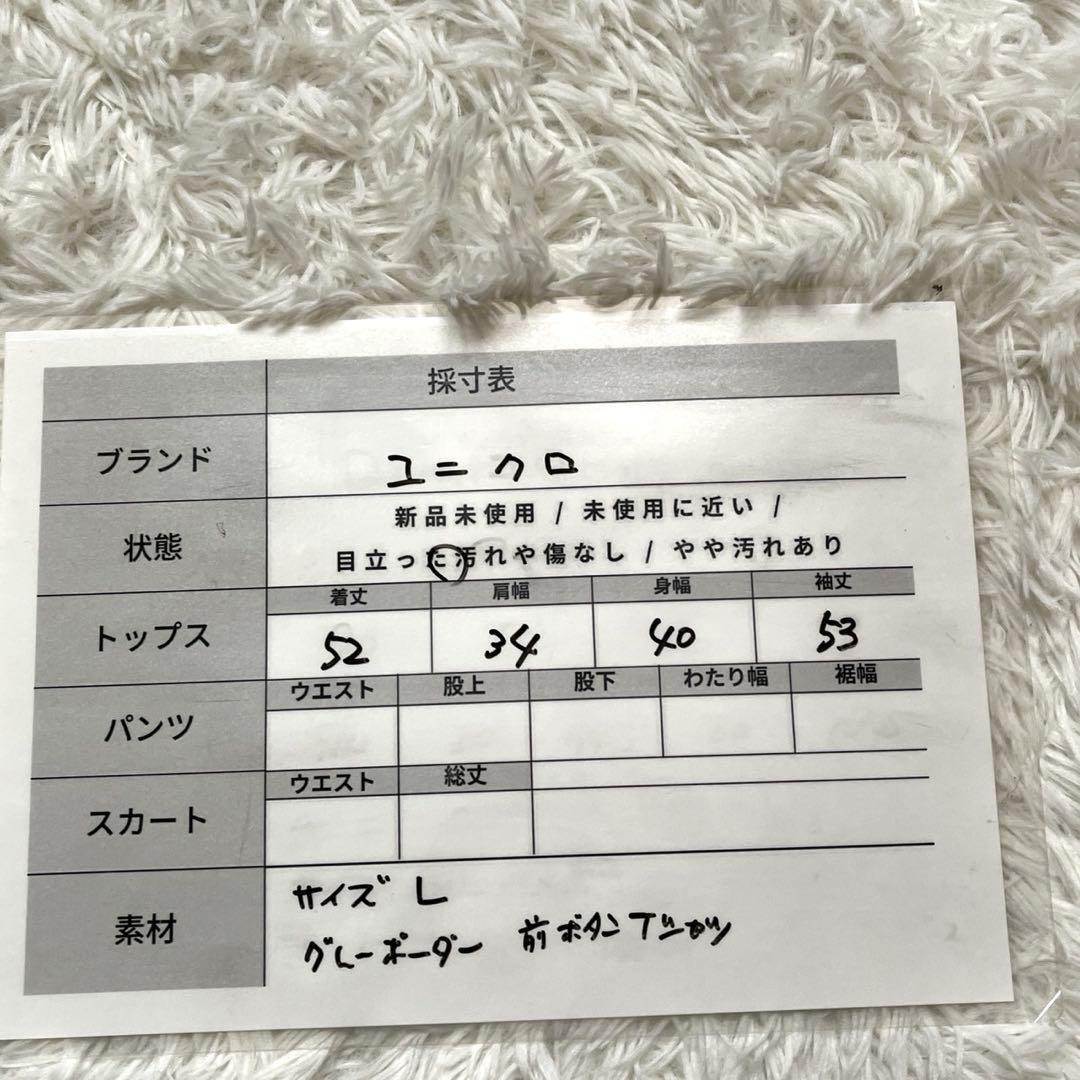 採寸表
ブランド ユニクロ
状態 新品未使用 / 未使用に近い /
目立った汚れや傷なし / やや汚れあり
トップス 着丈 肩幅 身幅 袖丈
52 34 40 53
パンツ ウエスト 股上 股下 わたり幅 裾幅
スカート ウエスト 総丈
素材 サイズ L
グレーボーダー 前ボタンTシャツ